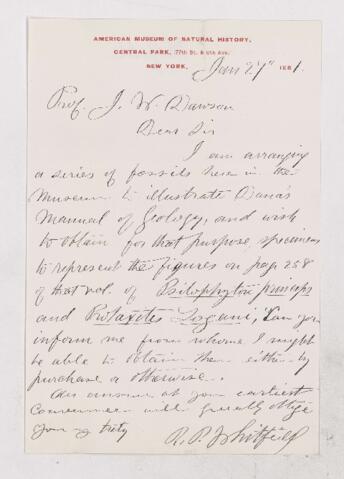 AMERICAN MUSEUM OF NATURAL HISTORY,
CENTRAL PARK, 77th St. & 8th Ave.
NEW YORK, Jan 27" 1881.
Prof. J. W. Dawson
Dear Sir
I am arranging
a series of fossils here in the
Museum to illustrate Dana's
Manual of Geology, and wish
to obtain for that purpose, specimens
to represent the figures on page 258
of that vol. of Psilophyton princeps
and Prototaxites Logani, Can you
inform me from whome I might
be able to obtain them either by
purchase or otherwise.
An answer at your earliest
convenience will greatly oblige
your truly
R. P. Whitfield